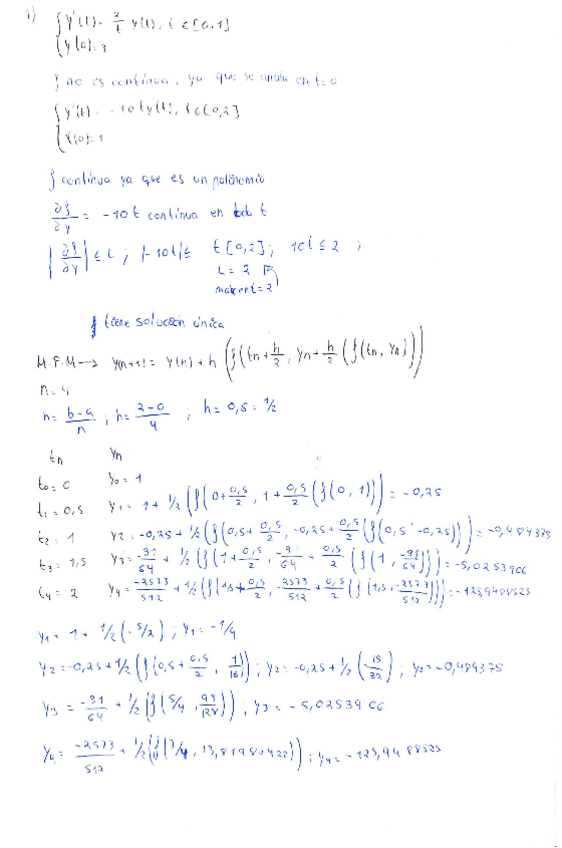 1) { y'(t) = 2/t y(t), t ∈ [0,1]
y(0) = 3
f no es continua, ya que se anula en t=0
{ y'(t) = -10 t y(t), t ∈ [0,2]
y(0) = 1
f continua ya que es un polinomio
∂f/∂y = -10t continua en todo t
|∂f/∂y| ≤ L ; |-10t| ≤ t [0,2]; 10t ≤ 2 ;
L = 2
max en t = 2
f tiene solución única
M.P.M → y(n+1) = y(n) + h (f(tn + h/2, yn + h/2 (f(tn, yn))))
n = 4
h = b-a/n ; h = 2-0/4 , h = 0,5 = 1/2
tn yn
t0 = 0 y0 = 1
t1 = 0,5 y1 = 1 + 1/2 (f(0 + 0,5/2, 1 + 0,5/2 (f(0, 1)))) = -0,25
t2 = 1 y2 = -0,25 + 1/2 (f(0,5 + 0,5/2, -0,25 + 0,5/2 (f(0,5, -0,25)))) = -0,484375
t3 = 1,5 y3 = -31/64 + 1/2 (f(1 + 0,5/2, -31/64 + 0,5/2 (f(1, -31/64)))) = -5,0253906
t4 = 2 y4 = -2573/512 + 1/2 (f(1,5 + 0,5/2, -2573/512 + 0,5/2 (f(1,5, -2573/512)))) = -123,9488525
y1 = 1 + 1/2 (-5/2) ; y1 = -1/4
y2 = -0,25 + 1/2 (f(0,5 + 0,5/2, 1/16)) ; y2 = -0,25 + 1/2 (-15/32) ; y2 = -0,484375
y3 = -31/64 + 1/2 (f(5/4, 93/128)) ; y3 = -5,0253906
y4 = -2573/512 + 1/2 (f(7/4, 13,81982422)) ; y4 = -123,9488525